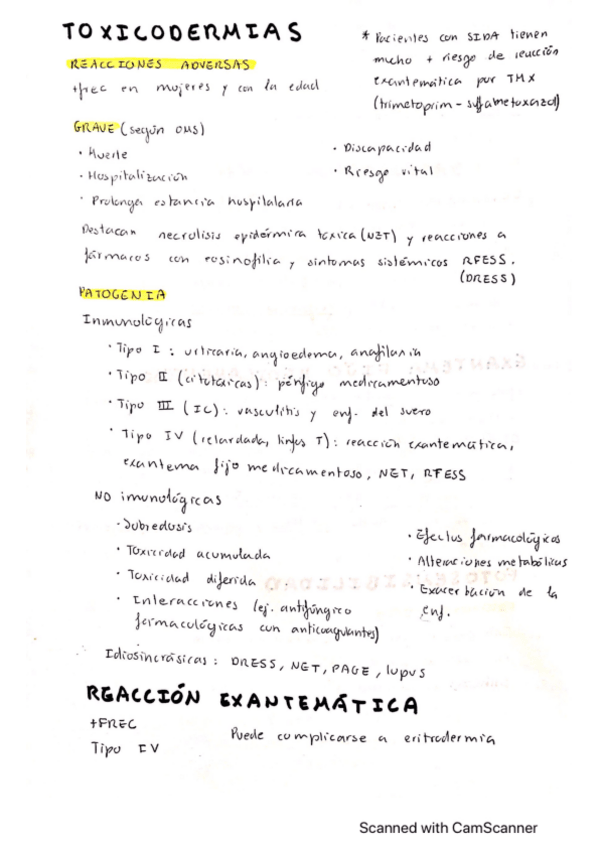 TOXICODERMIAS
REACCIONES ADVERSAS
+frec en mujeres y con la edad
* Pacientes con SIDA tienen
mucho + riesgo de reacción
exantemática por TMX
(trimetoprim-sulfametoxazol)
GRAVE (según OMS)
· Muerte
· Hospitalización
· Prolonga estancia hospitalaria
· Discapacidad
· Riesgo vital
Destacan necrolisis epidérmica tóxica (NET) y reacciones a
fármacos con eosinofilia y síntomas sistémicos RFESS.
(DRESS)
PATOGENIA
Inmunológicas
· Tipo I : urticaria, angioedema, anafilaxia
· Tipo II (citotóxicas) : pénfigo medicamentoso
· Tipo III (IC) : vasculitis y enf. del suero
· Tipo IV (retardada, linfos T) : reacción exantemática,
exantema fijo medicamentoso, NET, RFESS
NO imunológicas
· Sobredosis
· Toxicidad acumulada
· Toxicidad diferida
· Interacciones (ej. antifúngico
farmacológicas con anticoagulantes)
· Efectos farmacológicos
· Alteraciones metabólicas
· Exacerbación de la
enf.
Idiosincrásicas : DRESS, NET, PAGE, lupus
REACCIÓN EXANTEMÁTICA
+FREC
Tipo IV
Puede complicarse a eritrodermia
Scanned with CamScanner